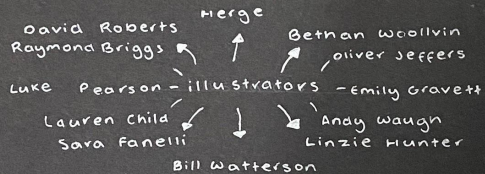 Herge
David Roberts
Raymond Briggs
Bethan Woollvin
Oliver Jeffers
Luke Pearson - illustrators - Emily Gravett
Lauren Child
Sara Fanelli
Andy Waugh
Linzie Hunter
Bill Watterson